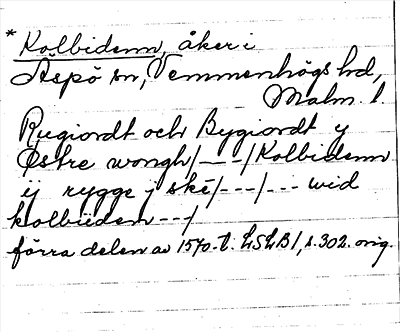 * Kolbidenn, åker i
Äspö sn, Vemmenhögs hd,
Malm. l.
Rugiordt och Bygiordt y
Østre wongh/---/Kolbidenn
ij rygge j skē/---/--- wid
kolbiiden ---/
förra delen av 1570-t. LSLB 1, s. 302. orig.